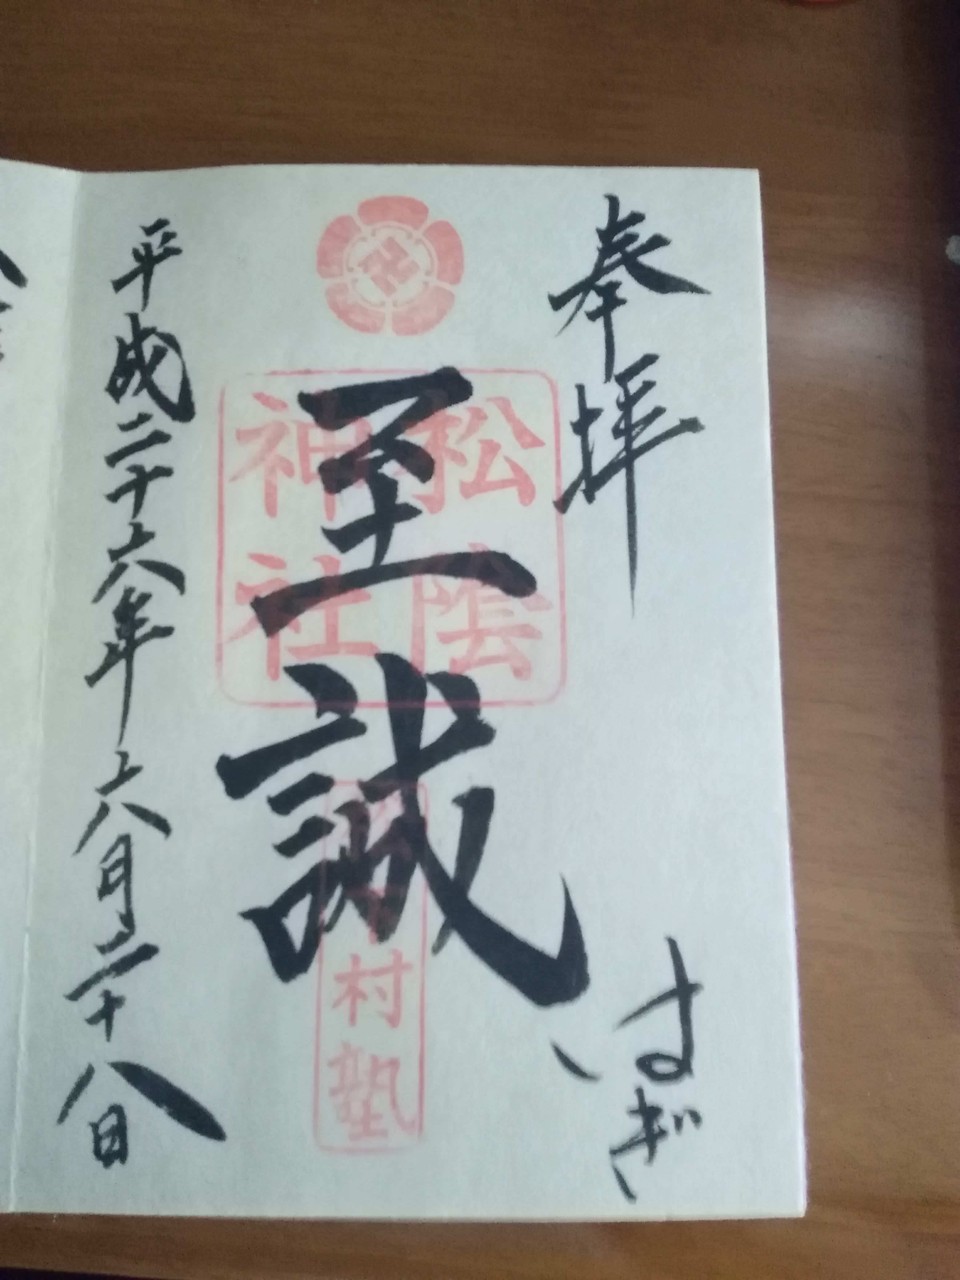 奉拝
はぎ
至誠
松陰
神社
村塾
平成二十六年六月二十八日